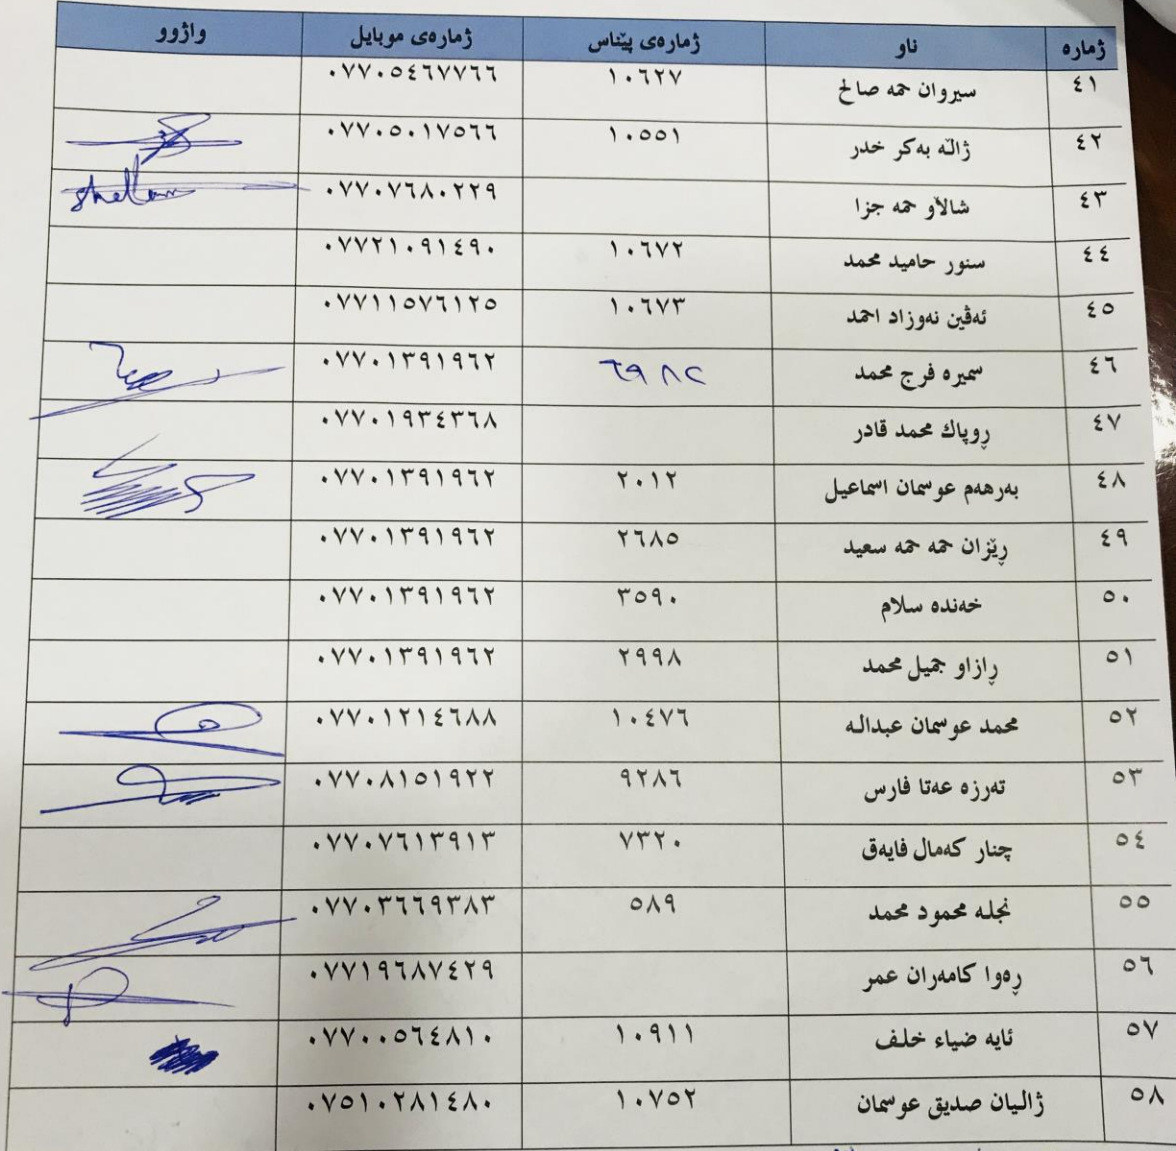 ژمارە ناو ژمارەی پێناس ژمارەی موبایل واژوو
٤١ سیروان حمە صالح ١٠٦٢٧ ٠٧٧٠٥٤٦٧٧٦٦
٤٢ ژاڵە بەکر خدر ١٠٥٥١ ٠٧٧٠٥٠١٧٥٦٦
٤٣ شالاو حمە جزا ٠٧٧٠٧٦٨٠٢٢٩
٤٤ سنور حامید محمد ١٠٦٧٢ ٠٧٧٢١٠٩١٤٩٠
٤٥ ئەڤین نەوزاد احمد ١٠٦٧٣ ٠٧٧١١٥٧٦١٢٥
٤٦ سمیرە فرج محمد ٦٩٨٢ ٠٧٧٠١٣٩١٩٦٢
٤٧ ڕوپاك محمد قادر ٠٧٧٠١٩٣٤٣٦٨
٤٨ بەرهەم عوسمان اسماعیل ٢٠١٢ ٠٧٧٠١٣٩١٩٦٢
٤٩ ڕێژان حمە حمە سعید ٢٦٨٥ ٠٧٧٠١٣٩١٩٦٢
٥٠ خەندە سلام ٣٥٩٠ ٠٧٧٠١٣٩١٩٦٢
٥١ ڕازاو جمیل محمد ٢٩٩٨ ٠٧٧٠١٣٩١٩٦٢
٥٢ محمد عوسمان عبدالە ١٠٤٧٦ ٠٧٧٠١٢١٤٦٨٨
٥٣ تەرزە عەتا فارس ٩٢٨٦ ٠٧٧٠٨١٥١٩٢٢
٥٤ چنار کەمال فایەق ٧٣٢٠ ٠٧٧٠٧٦١٣٩١٣
٥٥ نجلە محمود محمد ٥٨٩ ٠٧٧٠٣٦٦٩٣٨٣
٥٦ ڕەوا کامەران عمر ٠٧٧١٩٦٨٧٤٢٩
٥٧ ئایە ضیاء خلف ١٠٩١١ ٠٧٧٠٠٥٦٤٨١٠
٥٨ ژالیان صدیق عوسمان ١٠٧٥٢ ٠٧٥١٠٢٨١٤٨٠